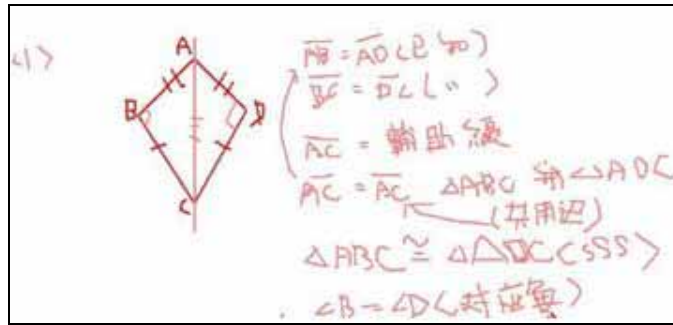 <1>
A
B
D
C
AB = AD (已知)
BC = DC (〃)
AC = 輔助線
AC = AC △ABC 和 △ADC
(共用边)
△ABC ≅ △ADC (SSS)
∠B = ∠D (对应角)